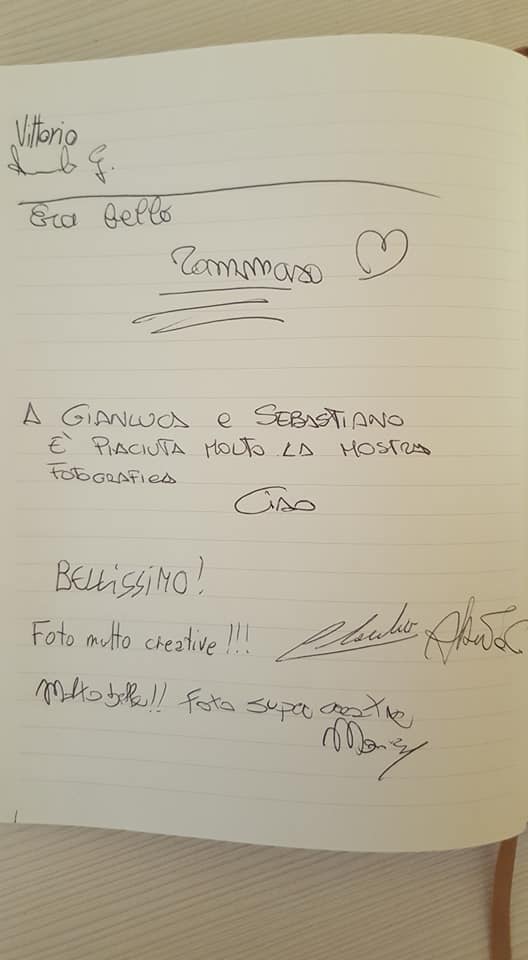 Vittorio
G.
Era bello
Tommaso
A GIANLUCA e SEBASTIANO
È PIACIUTA MOLTO LA MOSTRA
FOTOGRAFICA
Ciao
BELLISSIMO!
Foto molto creative!!!
Molto belle!! Foto super creative